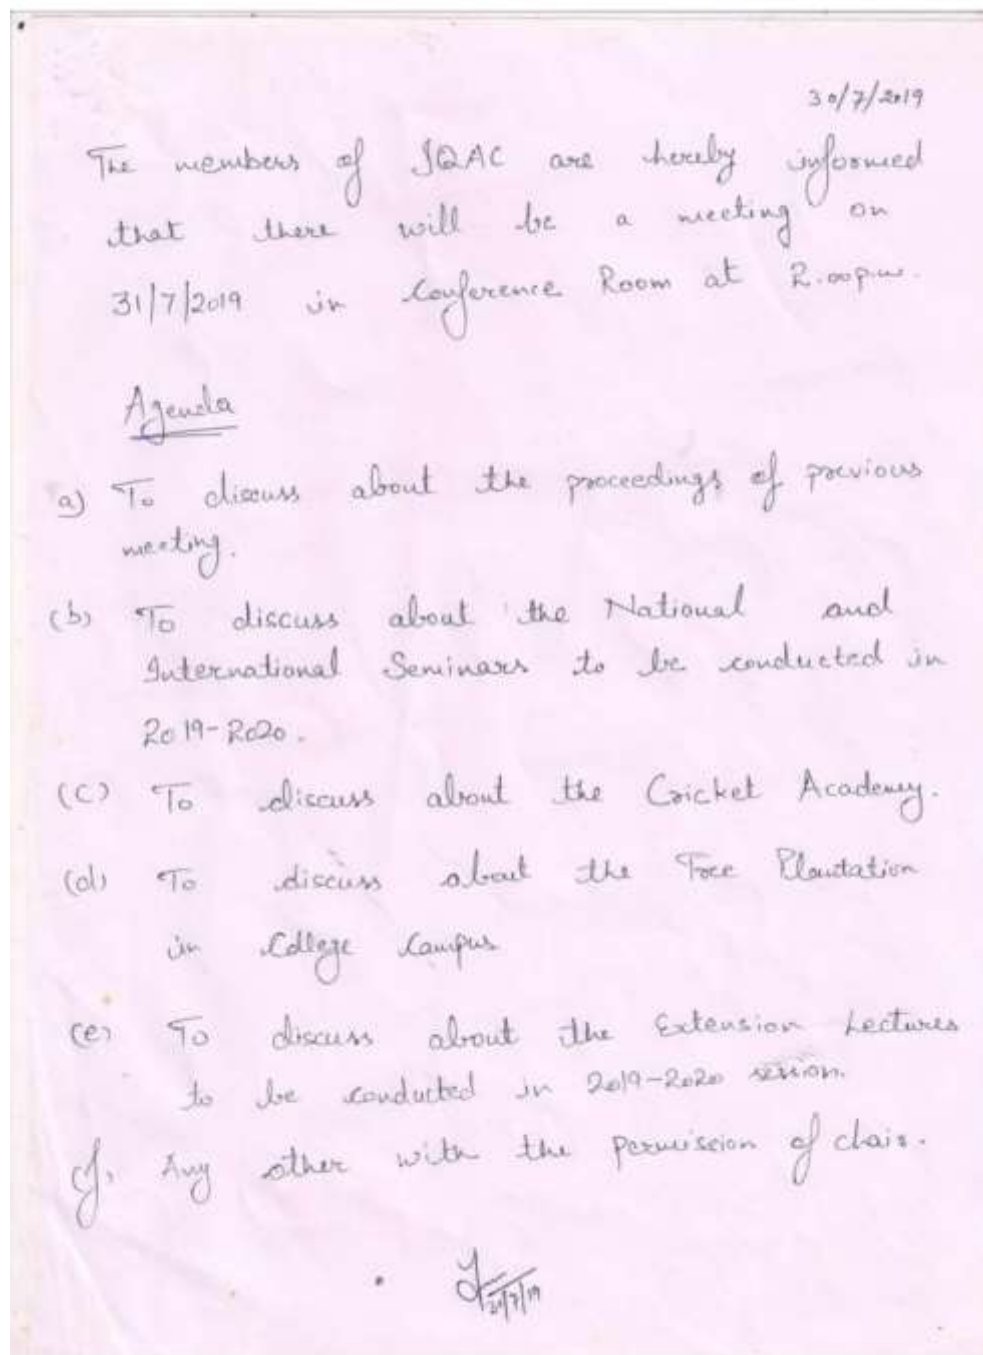 30/7/2019
The members of IQAC are hereby informed
that there will be a meeting on
31/7/2019 in Conference Room at 2.00p.m.
Agenda
a) To discuss about the proceedings of previous
meeting.
(b) To discuss about the National and
International Seminars to be conducted in
2019-2020.
(C) To discuss about the Cricket Academy.
(d) To discuss about the Tree Plantation
in College Campus
(e) To discuss about the Extension Lectures
to be conducted in 2019-2020 session.
(f) Any other with the permission of chair.